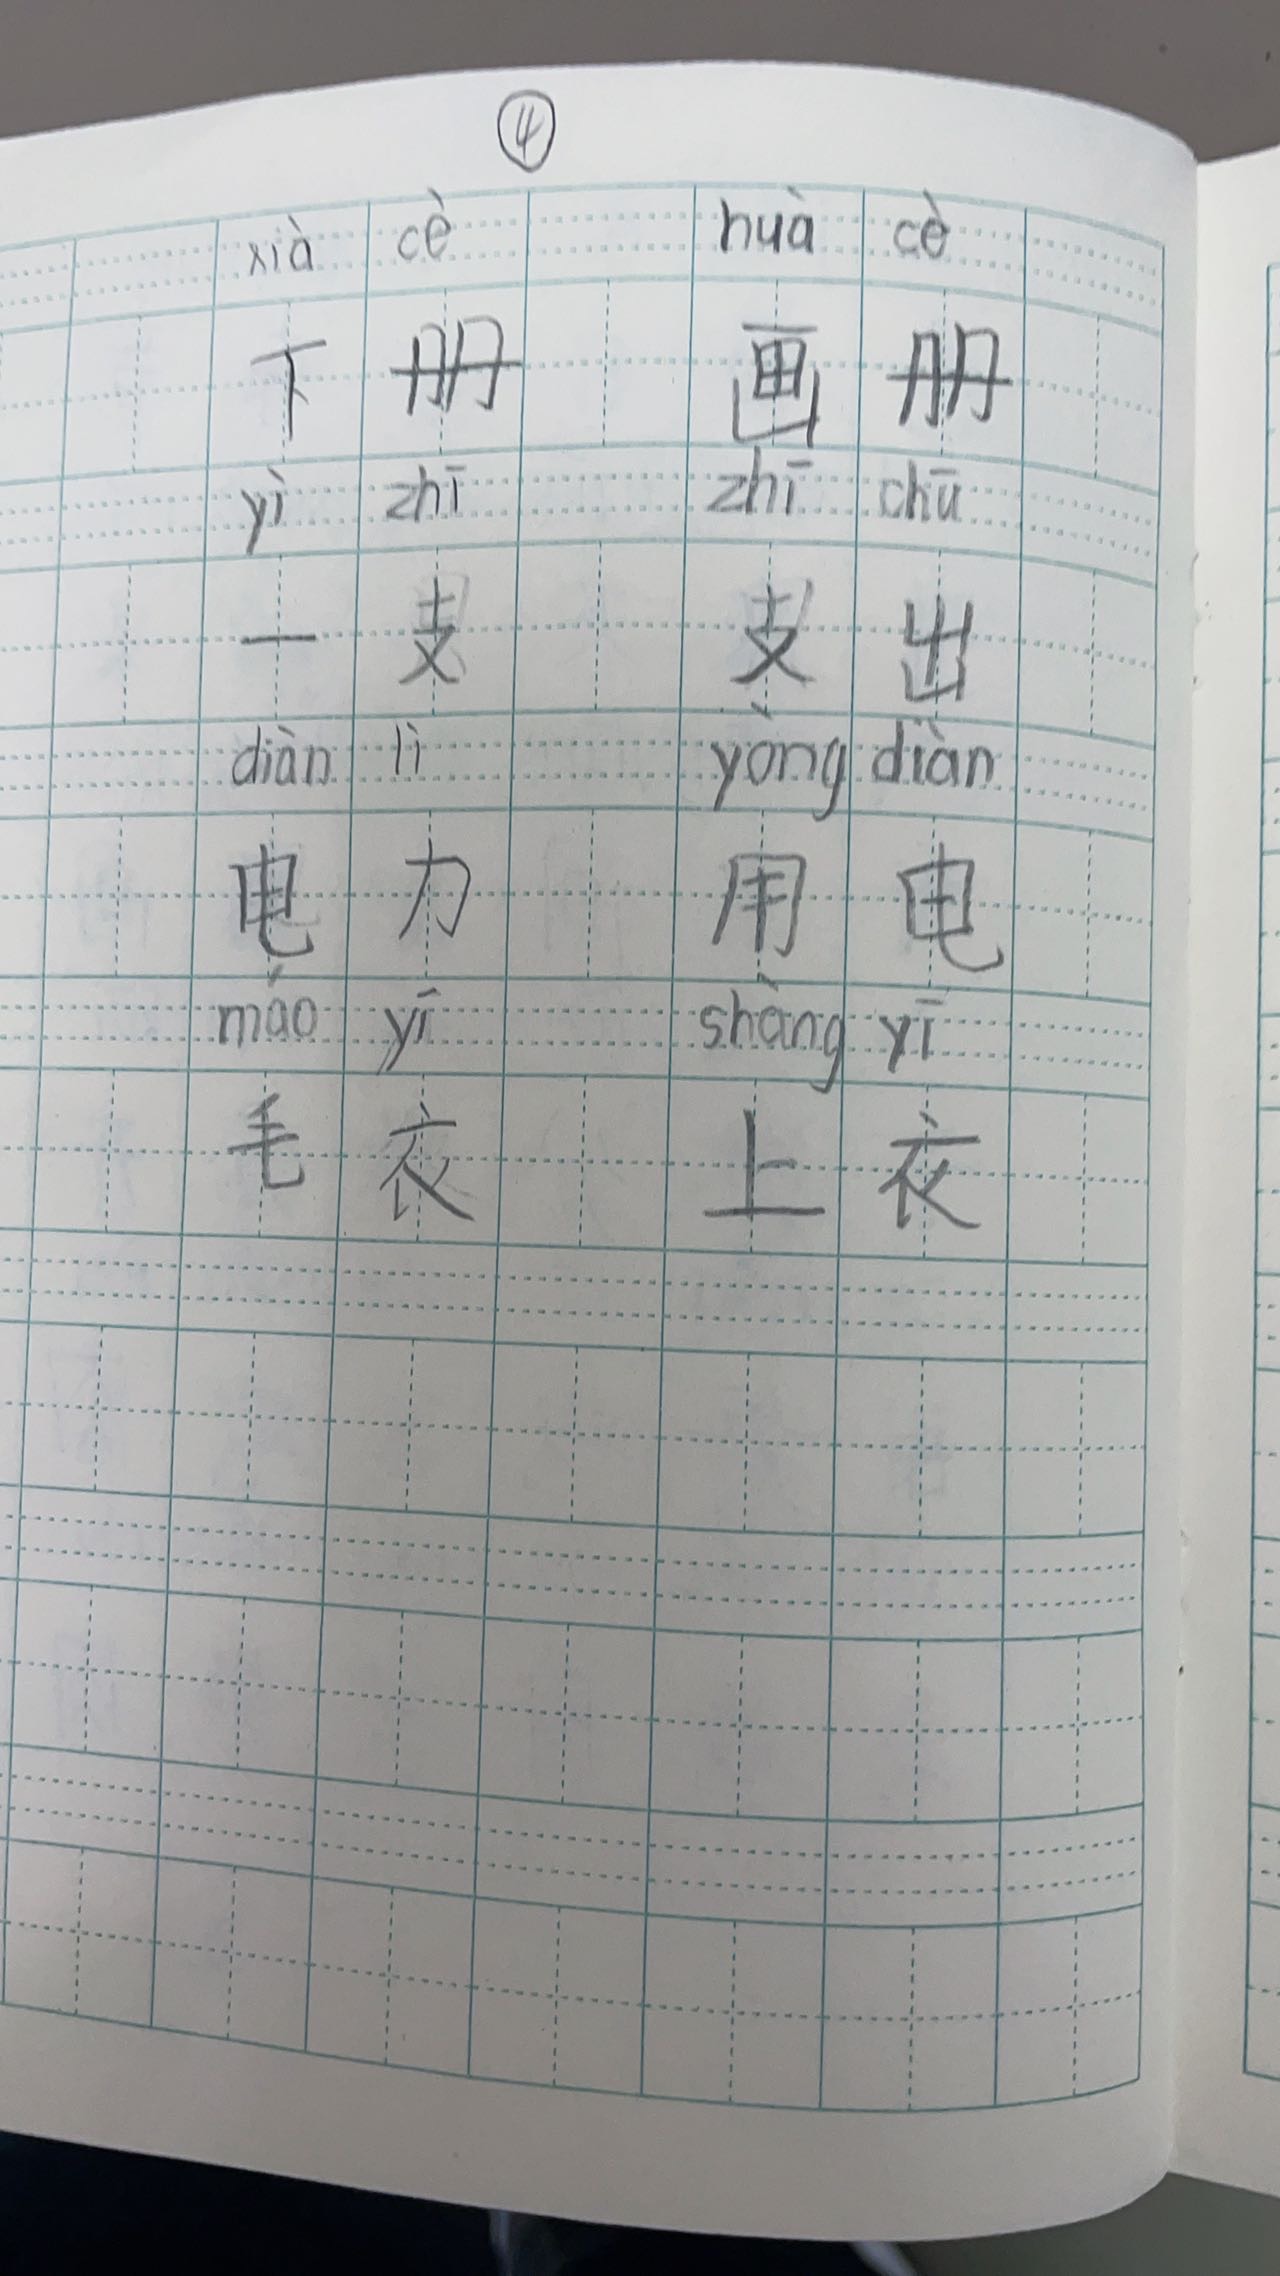 ④
xià cè huà cè
下册 画册
yì zhī zhī chū
一支 支出
diàn lì yòng diàn
电力 用电
máo yī shàng yī
毛衣 上衣